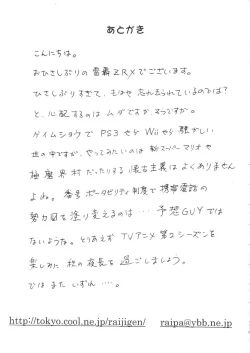 あとがき
こんにちは。
おひさしぶりの 雷覇ZRXでございます。
ひさしぶりすぎて、もはや 忘れ去られているのでは?
と、心配するのは ムダですか。そうですか。
ゲイムショウで PS3 やら Wii やら 騒がしい
世の中ですが、やってみたいのは 新スーパーマリオ や
極魔界村 だったりする 懐古主義は よくありません
よね。 番号ポータビリティ制度で 携帯電話の
勢力図を 塗り変えるのは … 予想GUY では
ないような。とりあえず TVアニメ 第2シーズンを
楽しみに 秋の夜長を 過ごしましょう。
では また いずれ ……。
http://tokyo.cool.ne.jp/raijigen/ raipa@ybb.ne.jp